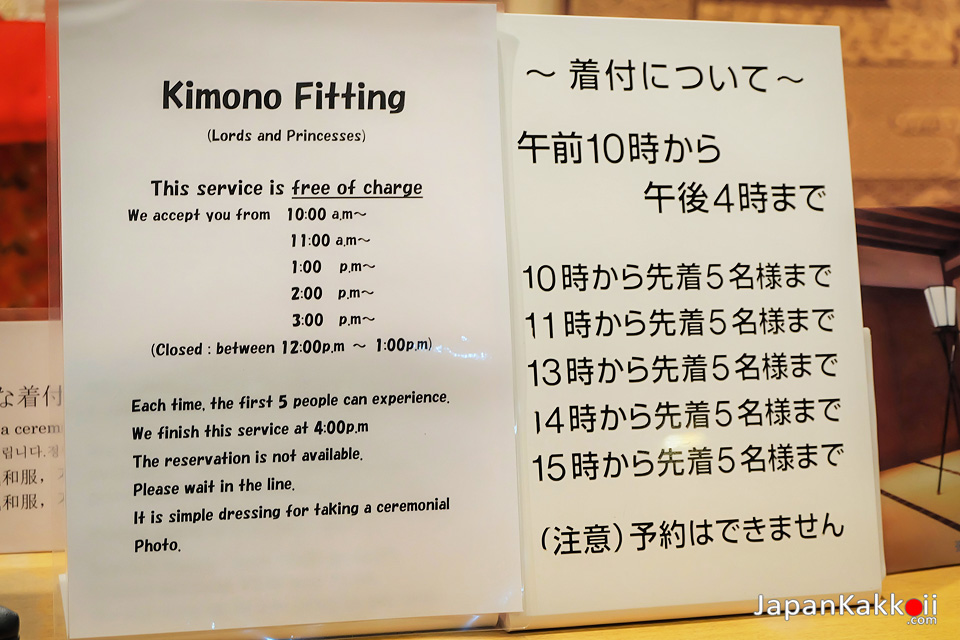 Kimono Fitting
(Lords and Princesses)
This service is free of charge
We accept you from 10:00 a.m～
11:00 a.m～
1:00 p.m～
2:00 p.m～
3:00 p.m～
(Closed : between 12:00p.m ～ 1:00p.m)
Each time, the first 5 people can experience.
We finish this service at 4:00p.m
The reservation is not available.
Please wait in the line.
It is simple dressing for taking a ceremonial
Photo.
～着付について～
午前10時から
午後4時まで
10時から先着5名様まで
11時から先着5名様まで
13時から先着5名様まで
14時から先着5名様まで
15時から先着5名様まで
(注意)予約はできません
な着付
a cerem
립니다.
和服，
和服，
JapanKakkoii
.com